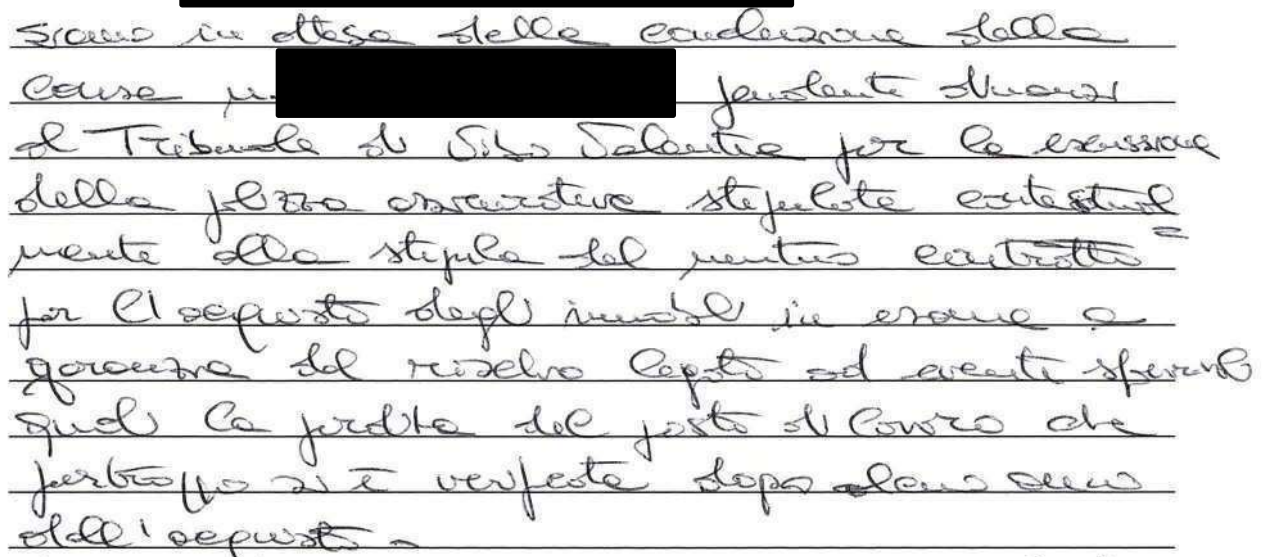 siamo in attesa della conclusione della
causa n. pendente dinanzi
al Tribunale di Vibo Valentia per la escussione
della polizza assicurativa stipulata contestual=
mente alla stipula del mutuo contratto
per l'acquisto degli immobili in esame a
garanzia del rischio legato ad eventi spiacevoli
quali la perdita del posto di lavoro che
purtroppo si è verificata dopo alcuni anni
dall'acquisto.